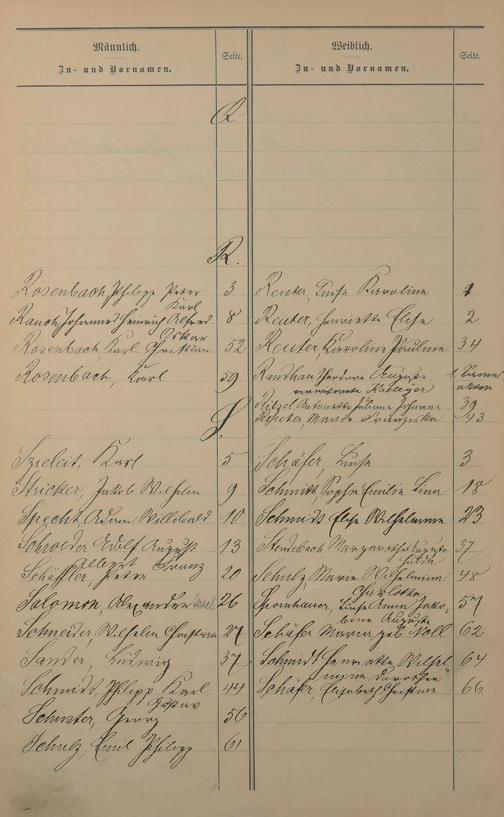 Männlich. Weiblich.
Zu- und Vornamen. Seite. Zu- und Vornamen. Seite.
Q
R.
Rosenbach, Philipp Peter 3 Reuter, Luise Karoline 1
Karl
Rauch, Johannes Heinrich Albert 8 Reuter, Henriette Elise 2
Oskar
Rosenbach Karl Christian 52 Reuter, Karoline Pauline 34
Rosenbach, Karl 59 Theodora Auguste
Ritzel Antonette Juliane Johanna 39
Reuter, Maria Franziska 43
S.
Szieleit, Karl 5 Schäfer, Luise 3
Stricker, Jakob Wilhelm 9 Schmitt, Sophie Emilie Lina 18
Specht, Adam Willibald 10 Schmidt Elise Wilhelmine 23
Schroeder Adolf August 13 Margarethe Auguste 37
Albert Franz
Schäffler, Peter 20 Schulz, Maria Wilhelmine 48
Salomon, Alexander Israel 26 Luise Anna 57
Schneider, Wilhelm Christian 27 Schäfer Maria geb. Noll 62
Sander, Ludwig 37 Schmidt Henriette Wilhel- 64
mine Dorothea
Schmidt, Philipp Karl 44 Schäfer, Elisabeth Christine 66
Gustav
Schuster, Georg 56
Schulz, Emil Philipp 61